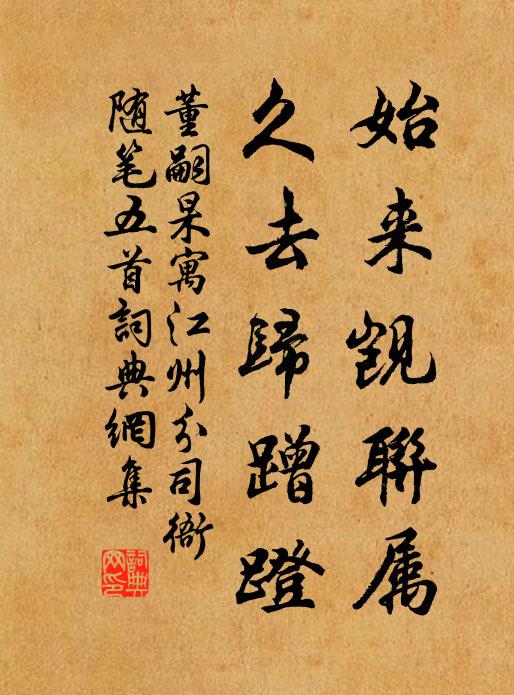 始来觊聯属
久去歸蹭蹬
董嗣杲寓江州分司衙
随笔五首詞典網集
詞典網印